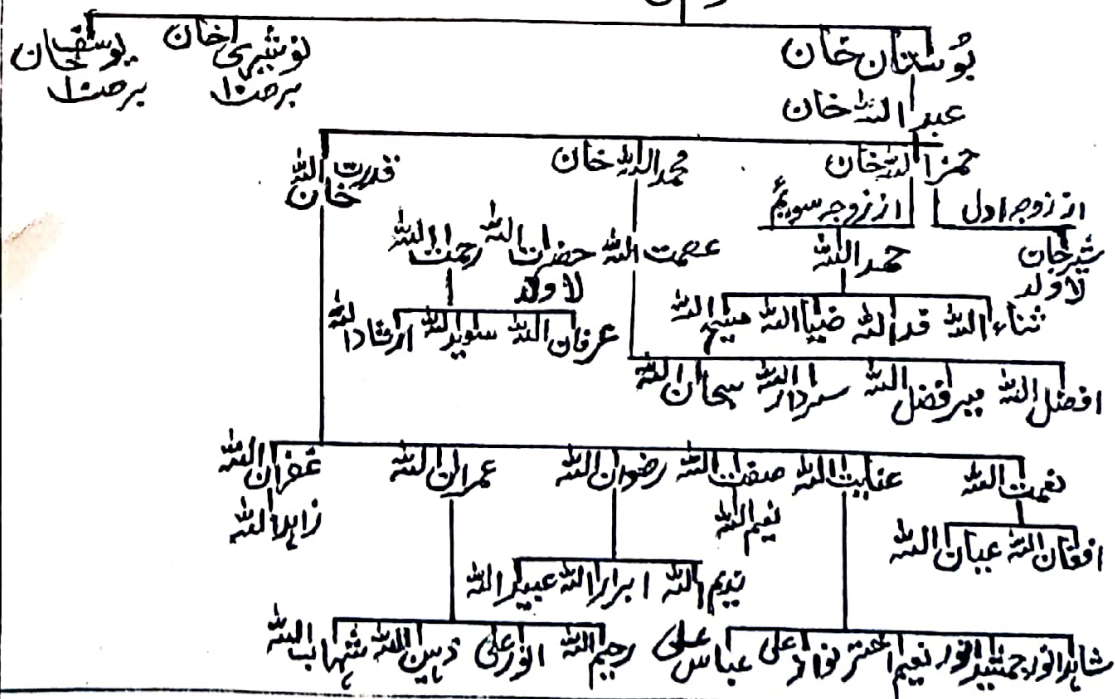 بوستان خان نوشیری خان یوسف خان
برصذا برصذا
عبد اللہ خان
حمزا اللہ خان محمد اللہ خان قدرت اللہ خان
از زوجہ اول از زوجہ سویم
شیر خان حمد اللہ عصمت اللہ حضرت اللہ رحمت اللہ
لاولد لاولد
ثناء اللہ قد اللہ ضیا اللہ
عرفان اللہ سوید اللہ ارشاد اللہ
افضل اللہ میر افضل اللہ سردار اللہ سبحان اللہ
نعمت اللہ عنایت اللہ صفت اللہ رضوان اللہ عمران اللہ غفران اللہ
نعیم اللہ زاہد اللہ
افغان اللہ عبیان اللہ
ندیم اللہ ابرار اللہ عبید اللہ
شاہد انور جمشید انور نعیم اختر نواز علی عباس علی رحیم اللہ انور علی ذہین اللہ شہاب اللہ